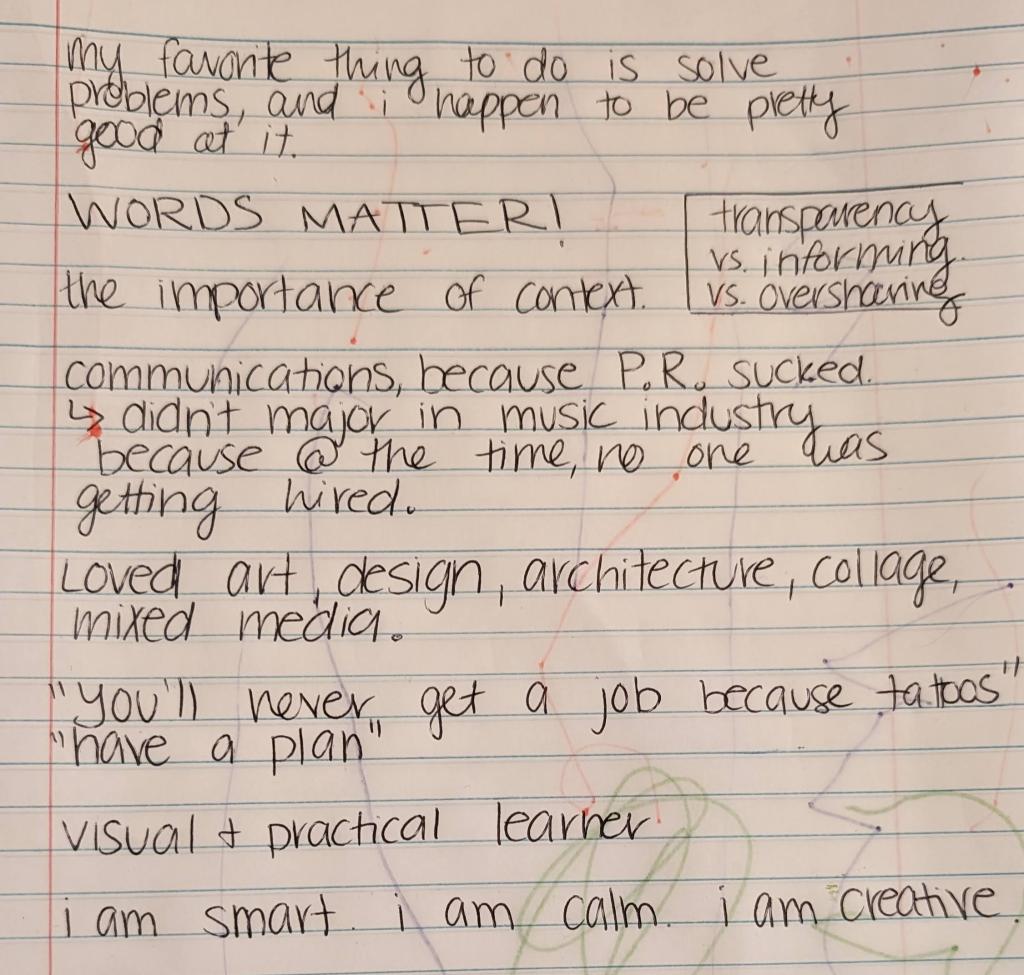 my favorite thing to do is solve
problems, and i happen to be pretty
good at it.
WORDS MATTER!
the importance of context.
transparency
vs. informing.
vs. oversharing
communications, because P.R. sucked.
↳ didn't major in music industry
because @ the time, no one was
getting hired.
Loved art, design, architecture, collage,
mixed media.
"you'll never get a job because tattoos"
"have a plan"
visual + practical learner
i am smart. i am calm. i am creative.